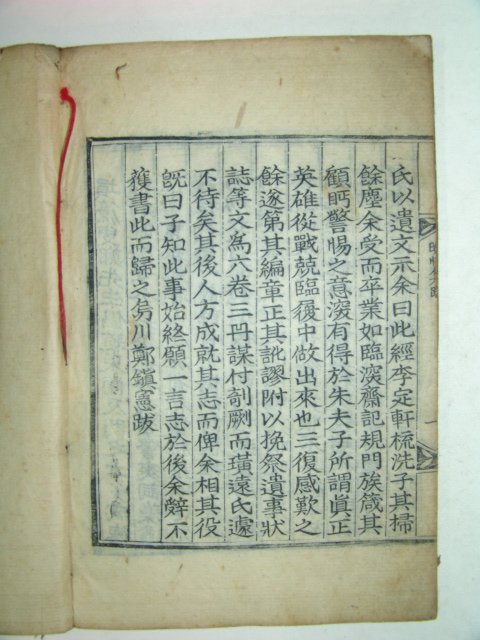 氏以遺文示余曰此經李定軒梳洗子其掃
餘塵余受而卒業如臨深齋記規門族箴其
顧眄警惕之意深有得於朱夫子所謂眞正
英雄從戰兢臨履中做出來也三復感歎之
餘遂第其編章正其訛謬附以挽祭遺事狀
誌等文為六卷三冊謀付剞劂而璜遠氏遽
不待矣其後人方成就其志而俾余相其役
旣曰子知此事始終願一言志於後余辤不
獲書此而歸之烏川鄭鎭憲跋